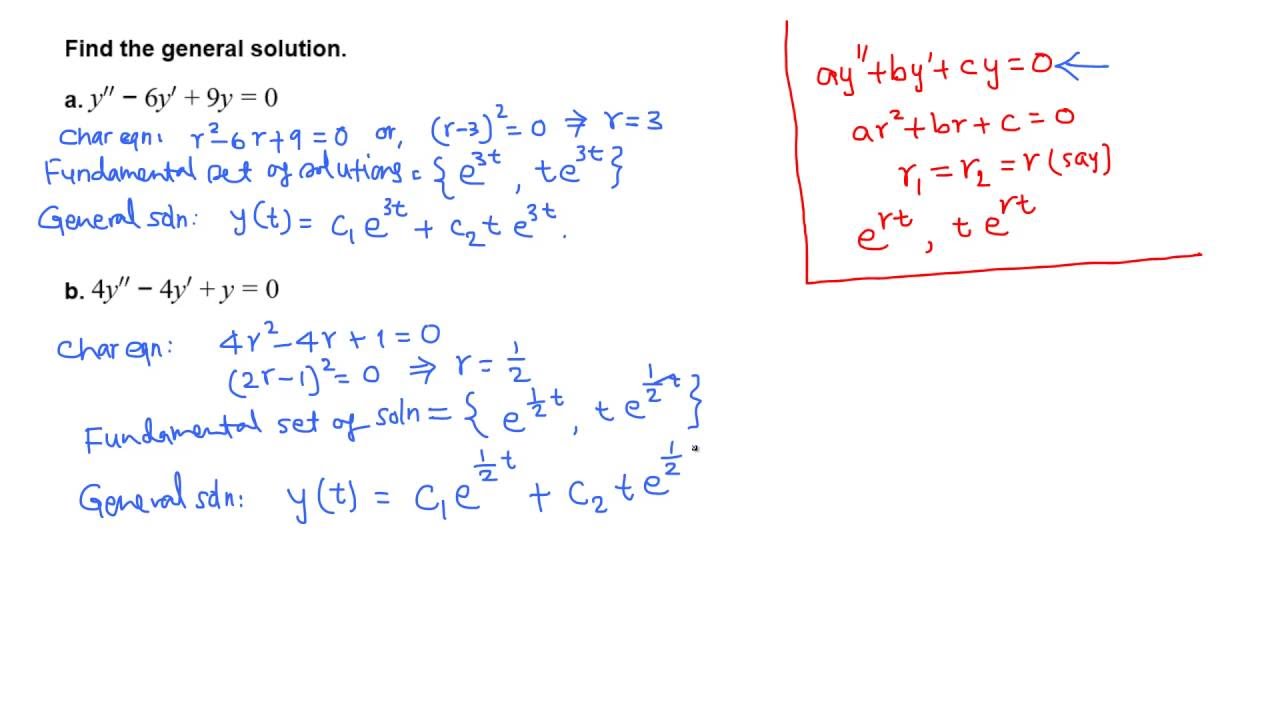 Find the general solution.
a. y″ − 6y′ + 9y = 0
Char eqn: r² − 6r + 9 = 0 or, (r−3)² = 0 ⇒ r = 3
Fundamental set of solutions = { e^{3t}, te^{3t} }
General soln: y(t) = c₁ e^{3t} + c₂ t e^{3t}.
b. 4y″ − 4y′ + y = 0
Char eqn: 4r² − 4r + 1 = 0
(2r−1)² = 0 ⇒ r = 1/2
Fundamental set of soln = { e^{1/2 t}, t e^{1/2 t} }
General soln: y(t) = c₁ e^{1/2 t} + c₂ t e^{1/2}
ay″ + by′ + cy = 0 ←
ar² + br + c = 0
r₁ = r₂ = r (say)
e^{rt}, t e^{rt}